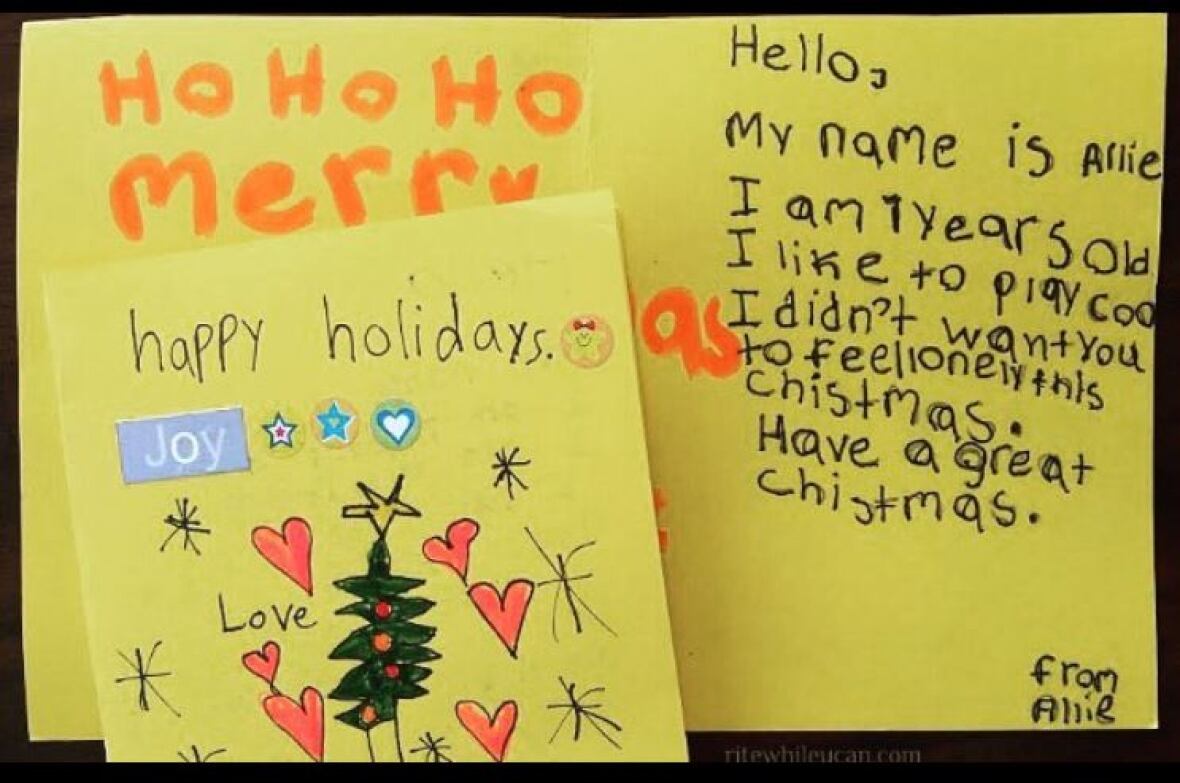 Ho Ho Ho
merry
as
happy holidays.
Joy
Love
Hello,
My name is Allie
I am 7 years old
I like to play coo
I didn't want you
to feel lonely this
chistmas.
Have a great
chistmas.
from
Allie
ritewhileucan.com